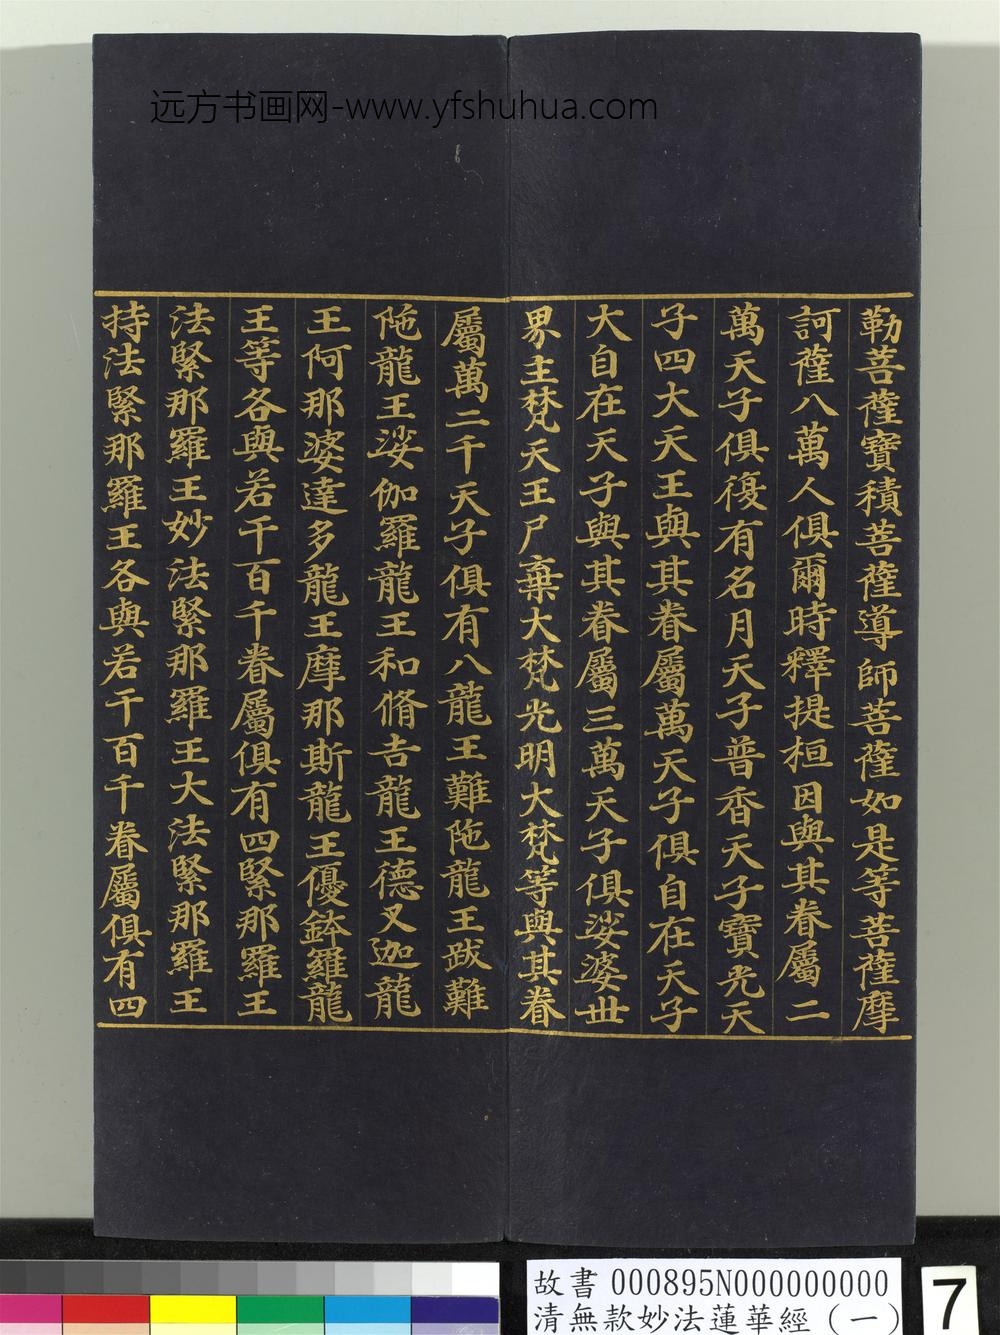 远方书画网-www.yfshuhua.com
勒菩薩寶積菩薩導師菩薩如是等菩薩摩
訶薩八萬人俱爾時釋提桓因與其眷屬二
萬天子俱復有名月天子普香天子寶光天
子四大天王與其眷屬萬天子俱自在天子
大自在天子與其眷屬三萬天子俱娑婆世
界主梵天王尸棄大梵光明大梵等與其眷
屬萬二千天子俱有八龍王難陁龍王跋難
陁龍王娑伽羅龍王和脩吉龍王德叉迦龍
王阿那婆達多龍王摩那斯龍王優鉢羅龍
王等各與若干百千眷屬俱有四緊那羅王
法緊那羅王妙法緊那羅王大法緊那羅王
持法緊那羅王各與若干百千眷屬俱有四
故書 000895N000000000
清無款妙法蓮華經（一）
7